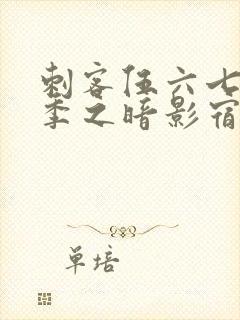 刺客伍六七
季之暗影宿
单培